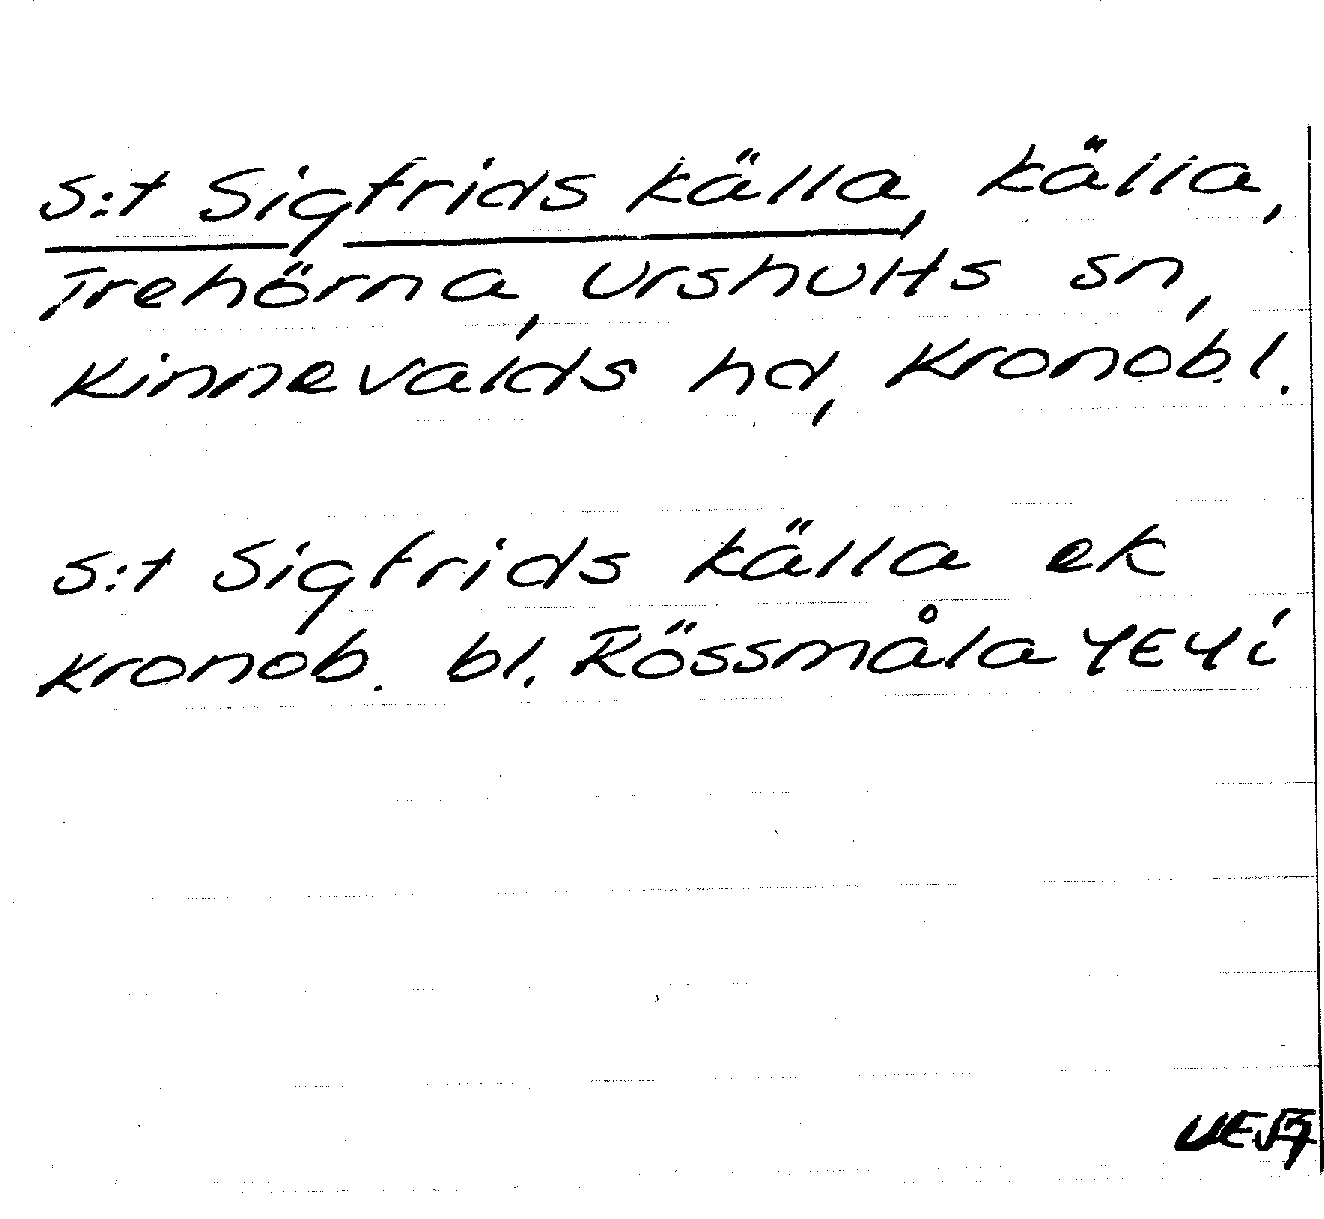 S:t Sigfrids källa, källa,
Trehörna, Urshults sn,
Kinnevalds hd, Kronob.l.
S:t Sigfrids källa ek
Kronob. bl. Rössmåla 4E4i